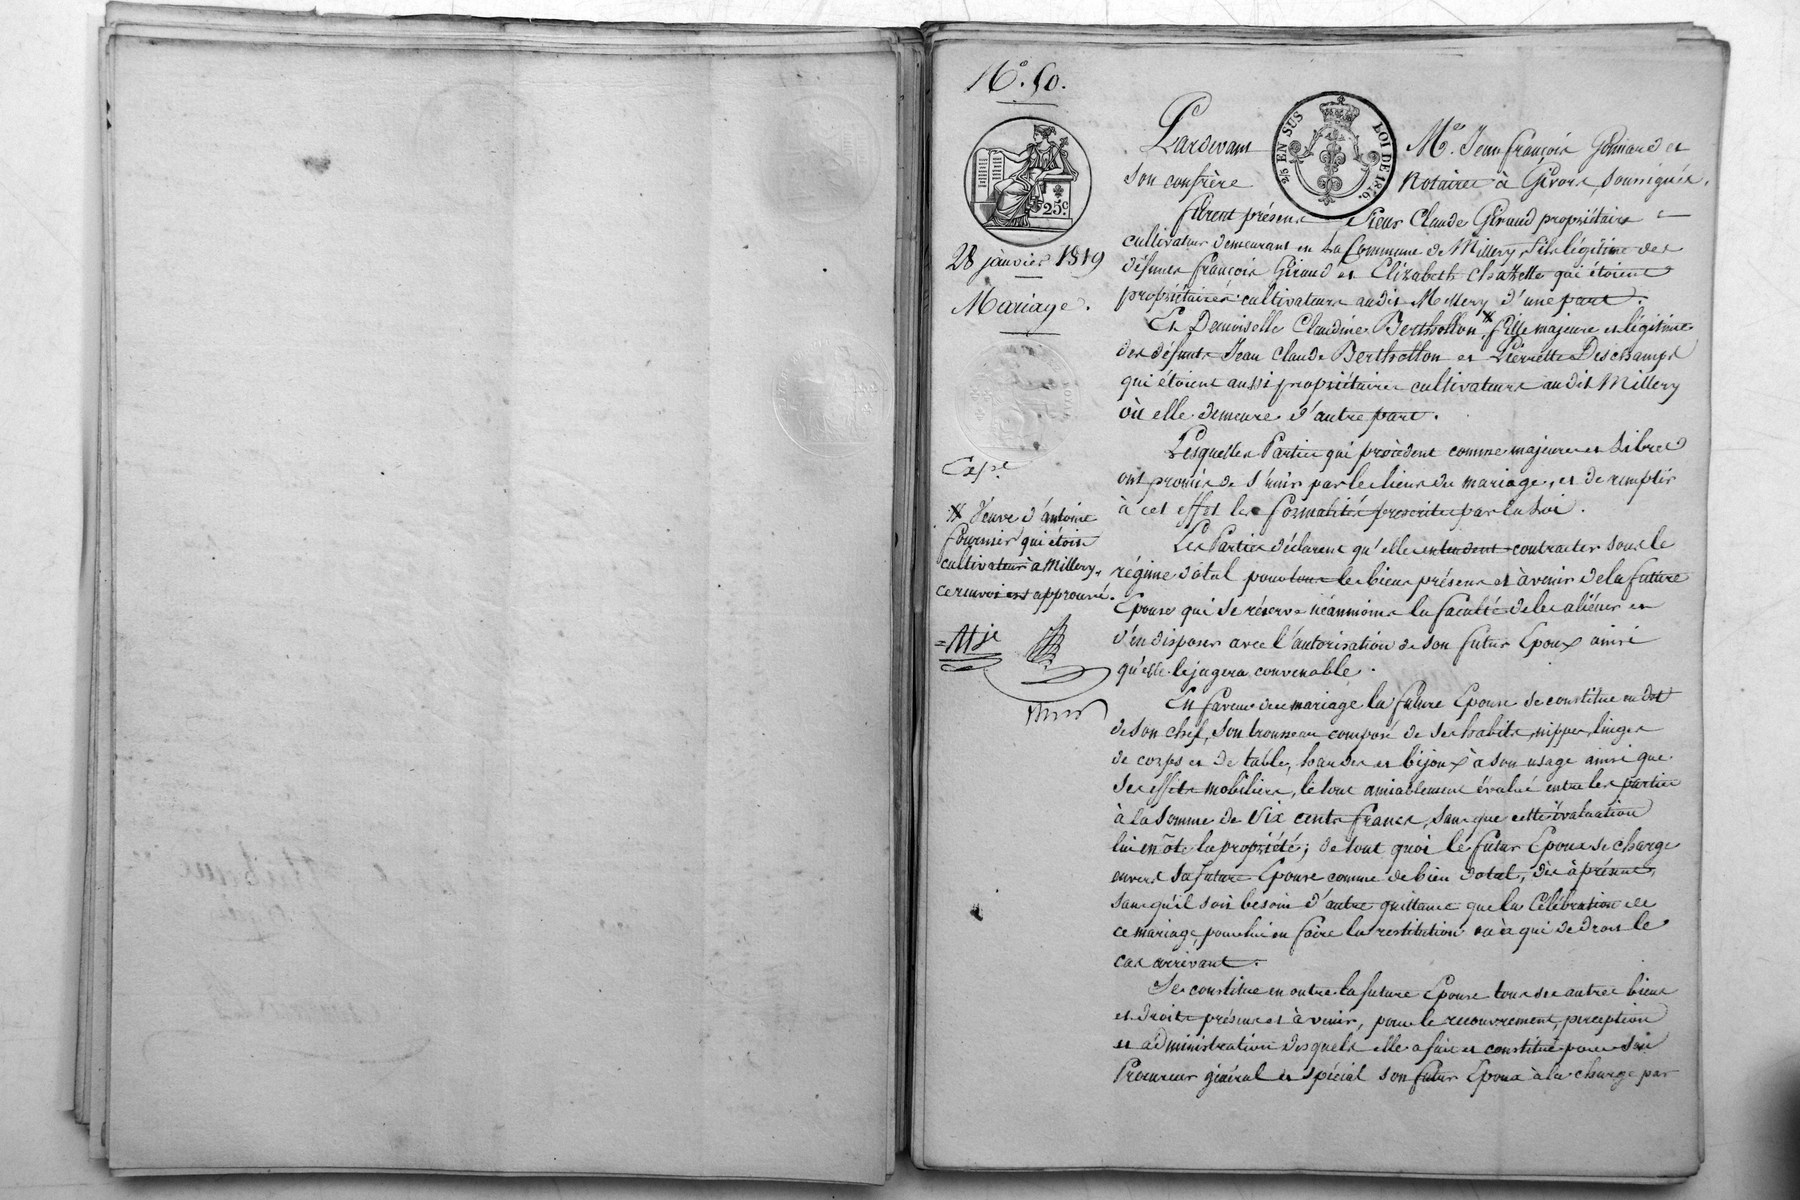 N.º 50.
25 EN SUS
LOI DE 1816.
25 c.
28 janvier 1819
Mariage.
Pardevant Me. Jean françois et
son confrère Notaires à Givors, soussignés,
furent présens Sieur Claude Giraud propriétaire
cultivateur demeurant en la Commune de Millery, fils légitime des
défunts françois Giraud et Elizabeth Chazelle qui étoient
propriétaires cultivateurs audit Millery d'une part.
Et Demoiselle Claudine Berthollon # fille majeure et légitime
des défunts Jean Claude Berthollon et Pierrette Deschamps
qui étoient aussi propriétaires cultivateurs audit Millery
où elle demeure d'autre part.
Lesquelles Parties qui procèdent comme majeures et libres
ont promis de s'unir par les liens du mariage, et de remplir
à cet effet les formalités prescrites par la loi.
Les Parties déclarent qu'elles entendent contracter sous le
régime dotal pour tous les biens présens et à venir de la future
Epouse qui se réserve néanmoins la faculté de les aliéner et
d'en disposer avec l'autorisation de son futur Epoux ainsi
qu'elle le jugera convenable.
En faveur de ce mariage la future Epouse se constitue en dot
de son chef, son trousseau composé de ses habits, nippes, linges
de corps et de table, hardes et bijoux à son usage ainsi que
ses effets mobiliers, le tout amiablement évalué entre les parties
à la somme de Six cents francs, sans que cette évaluation
lui en ôte la propriété; de tout quoi le futur Epoux se charge
envers sa future Epouse comme de bien dotal, dès à présent,
sans qu'il soit besoin d'autre quittance que la Célébration de
ce mariage, pour lui en faire la restitution ou à qui de droit le
cas arrivant.
Se constitue en outre la future Epouse tous ses autres biens
et droits présens et à venir, pour le recouvrement, perception
et administration desquels elle a fait et constitué pour son
Procureur général et spécial son futur Epoux à la charge par
Expé
# Veuve d'antoine
fournier qui étoit
cultivateur à Millery,
ce renvoi est approuvé.